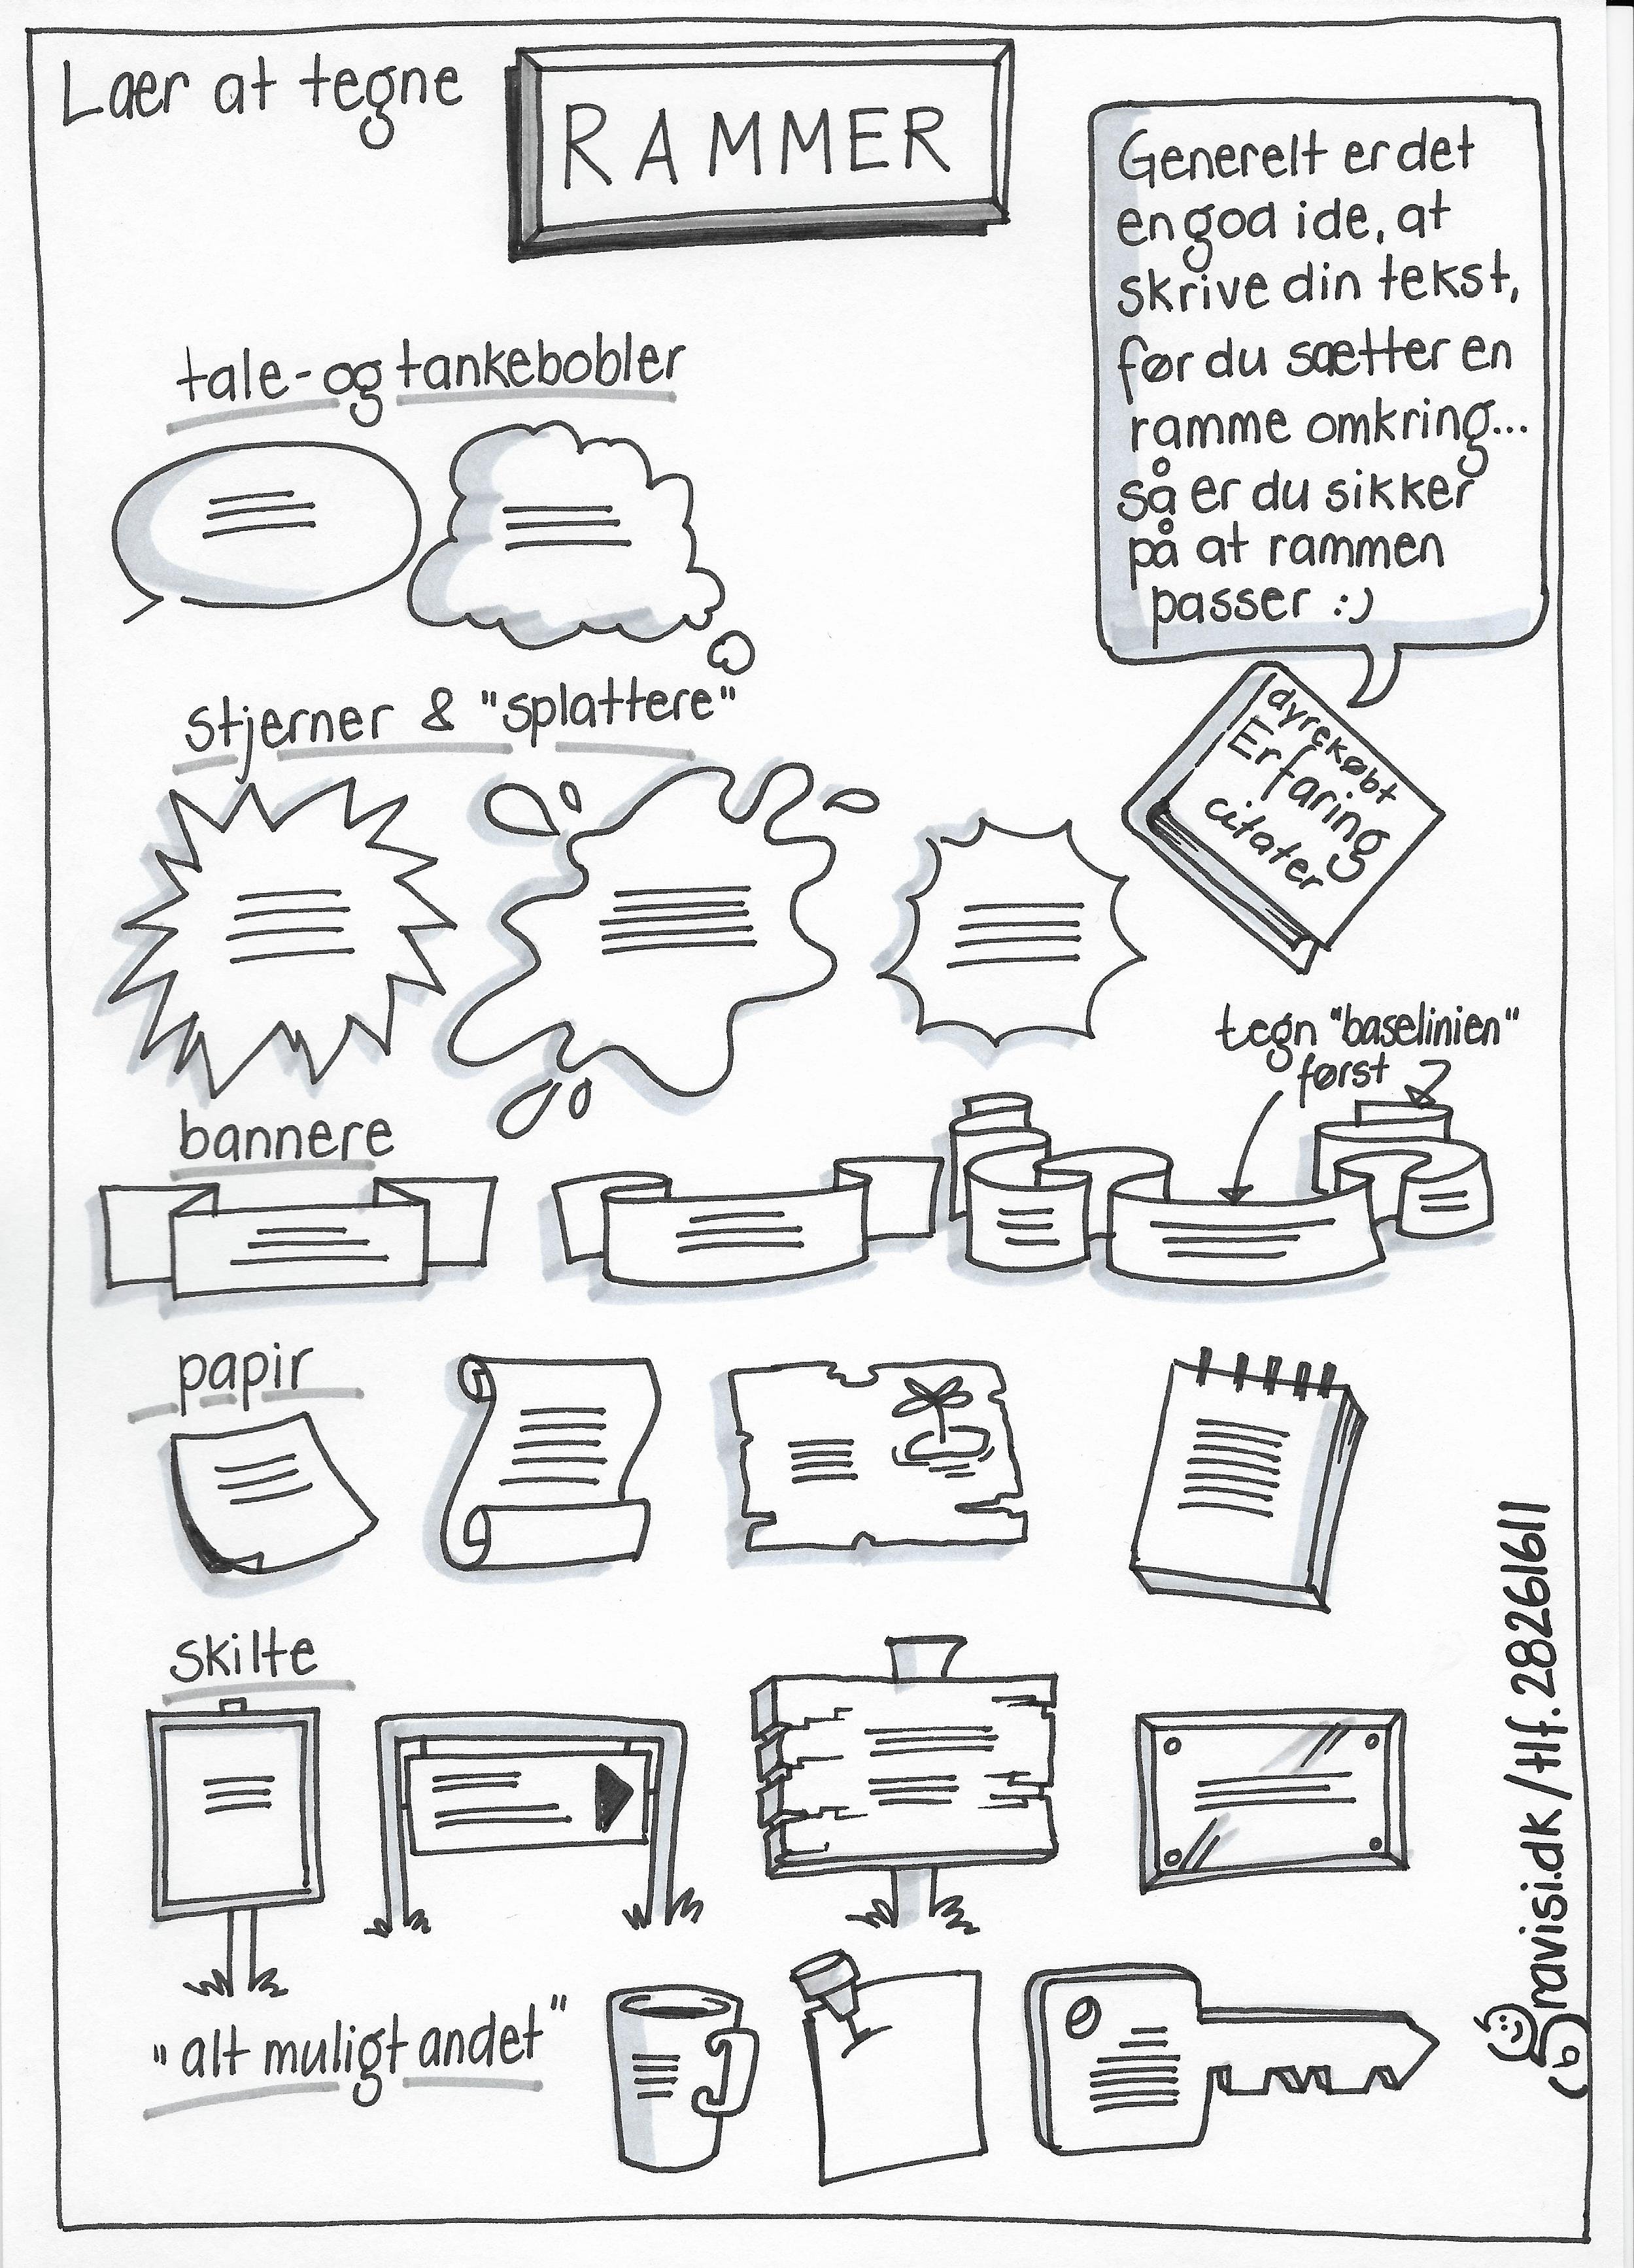 Lær at tegne
RAMMER
Generelt er det
en god ide, at
skrive din tekst,
før du sætter en
ramme omkring...
så er du sikker
på at rammen
passer :)
tale- og tankebobler
dyrekøbt
Erfaring
citater
stjerner & "splattere"
tegn "baselinien"
først
bannere
papir
skilte
"alt muligt andet"
Bravisi.dk/tlf. 28261611